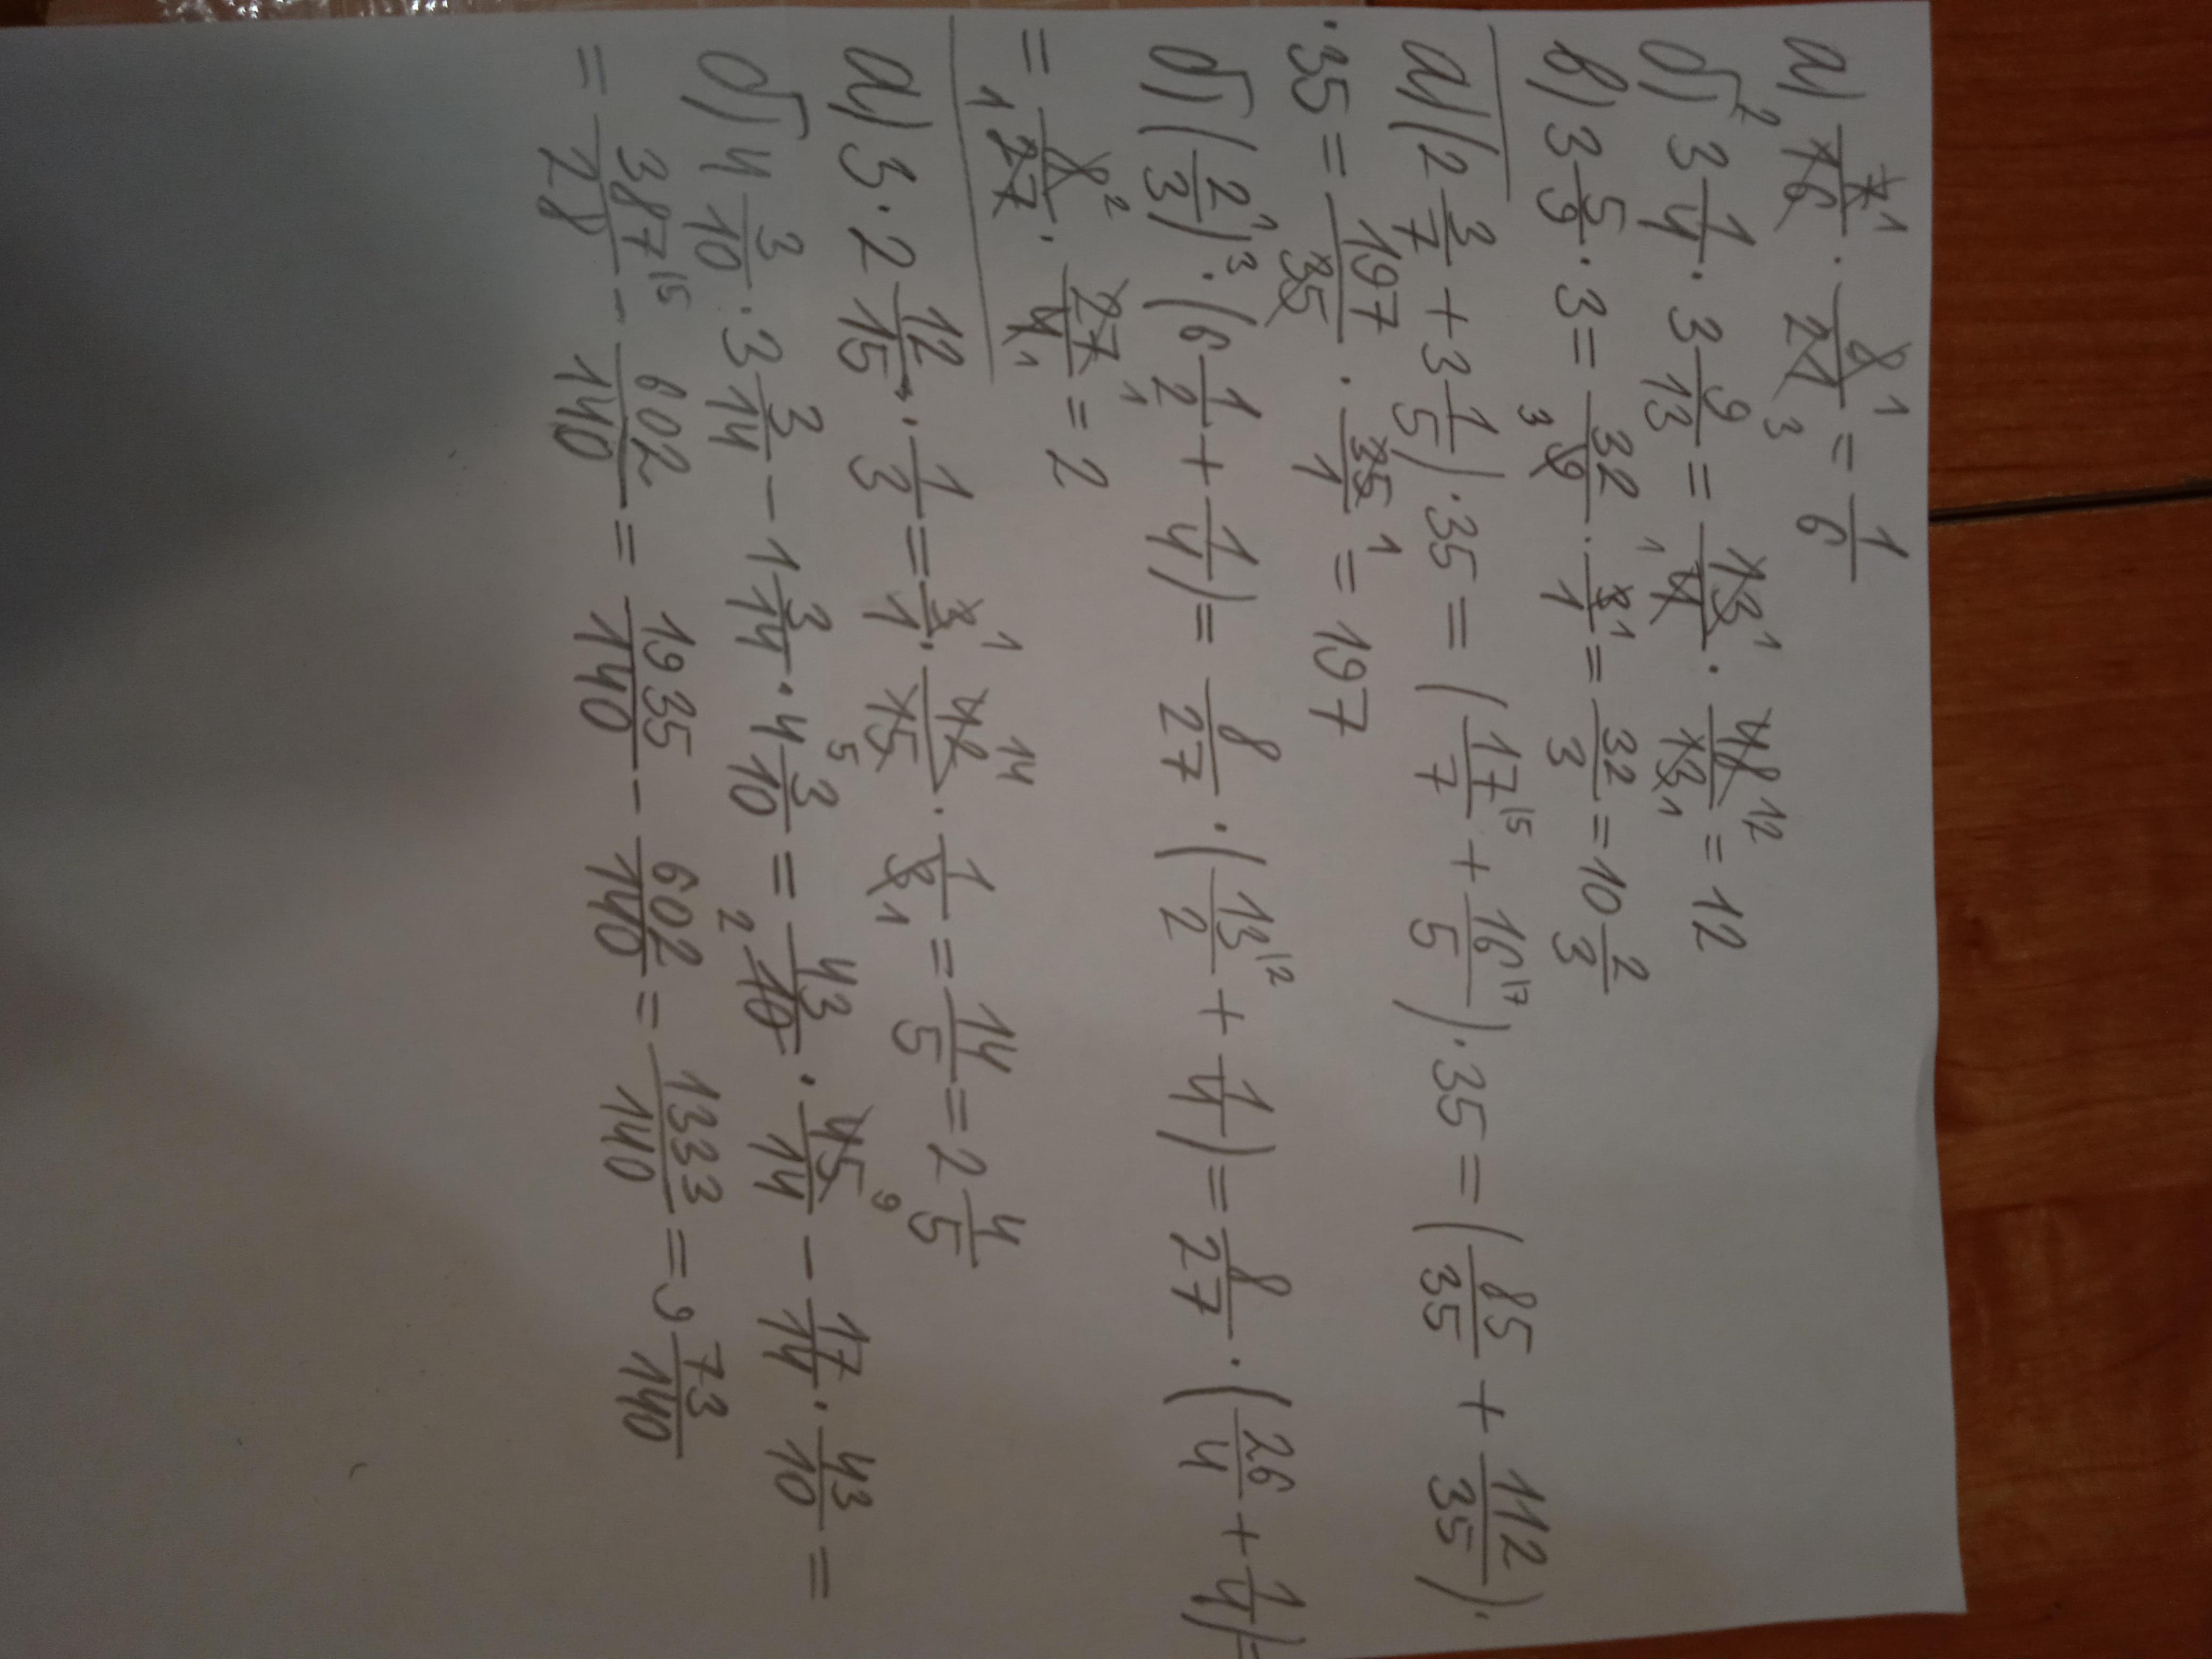 а) 7/16 · 8/21 = 1/6
б) 3 1/4 · 3 9/13 = 13/4 · 48/13 = 12
в) 3 5/9 · 3 = 32/9 · 3/1 = 32/3 = 10 2/3
а) (2 3/7 + 3 1/5) · 35 = (17/7 + 16/5) · 35 = (85/35 + 112/35) ·
· 35 = 197/35 · 35/1 = 197
б) (2/3)³ · (6 1/2 + 1/4) = 8/27 · (13/2 + 1/4) = 8/27 · (26/4 + 1/4) =
= 8/27 · 27/4 = 2
а) 3 · 2 12/15 · 1/3 = 3/1 · 42/15 · 1/3 = 14/5 = 2 4/5
б) 4 3/10 · 3 3/14 − 1 3/14 · 4 3/10 = 43/10 · 45/14 − 17/14 · 43/10 =
= 387/28 − 602/140 = 1935/140 − 602/140 = 1333/140 = 9 73/140